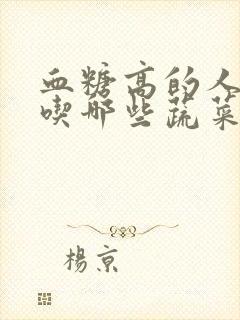 血糖高的人
喫哪些蔬菜
楊京